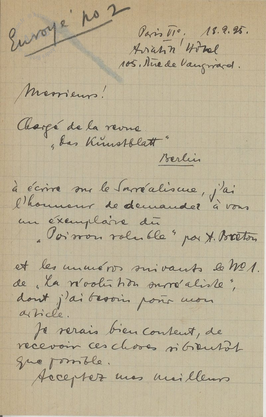 Envoyé no 2
Paris VIe. 18.9.25.
Aviatic Hôtel
105. Rue de Vaugirard.
Messieurs!
Chargé de la revue
„Das Kunstblatt"
Berlin
à écrire sur le Surréalisme, j'ai
l'honneur de demander à vous
un exemplaire du
„Poisson soluble" par A. Breton
et les numéros suivants le No 1.
de „La révolution surréaliste",
dont j'ai besoin pour mon
article.
Je serais bien content, de
recevoir ces choses si bientôt
que possible.
Acceptez mes meilleurs